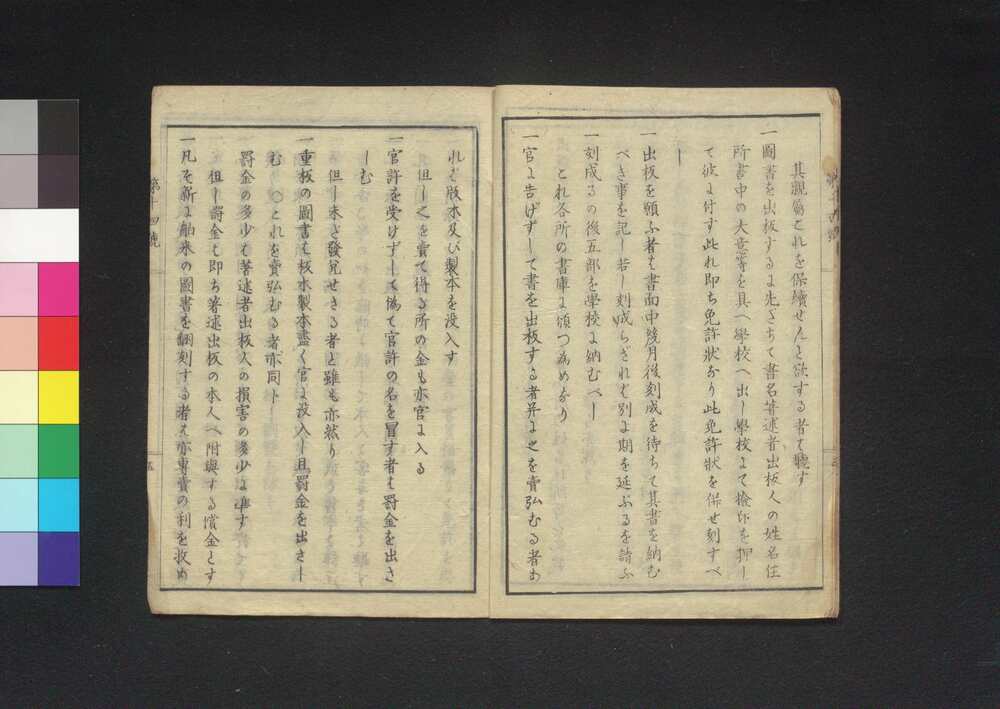 其親屬これを保續せんと欲する者も聽す
一圖書を出板するに先だちて書名著述者出板人の姓名住
所書中の大意等を具へ學校へ出し學校にて檢印を押し
て彼に付す此れ即ち免許狀なり此免許狀を併せ刻すべ
し
一出板を願ふ者は書面中幾月後刻成を待ちて其書を納む
べき事を記し若し刻成らざれば別に期を延ぶるを請ふ
一刻成るの後五部を學校に納むべし
これ各所の書庫に頒つ為めなり
一官に告げずして書を出板する者并に之を賣弘むる者あ
れば版木及び製本を没入す
但し之を賣て得る所の金も亦官に入る
一官許を受けずして僞て官許の名を冒す者も罰金を出さ
しむ
但し未だ發兌せざる者と雖も亦然り
一重板の圖書は板木製本盡く官に没入し且罰金を出さし
む ○これを賣弘むる者亦同ト
罰金の多少は著述者出板人の損害の多少に準す
但し罰金は即ち著述出板の本人へ附與する償金とす
一凡そ新に舶來の圖書を飜刻する者は亦專賣の利を收め
第十四號
五
第十四號